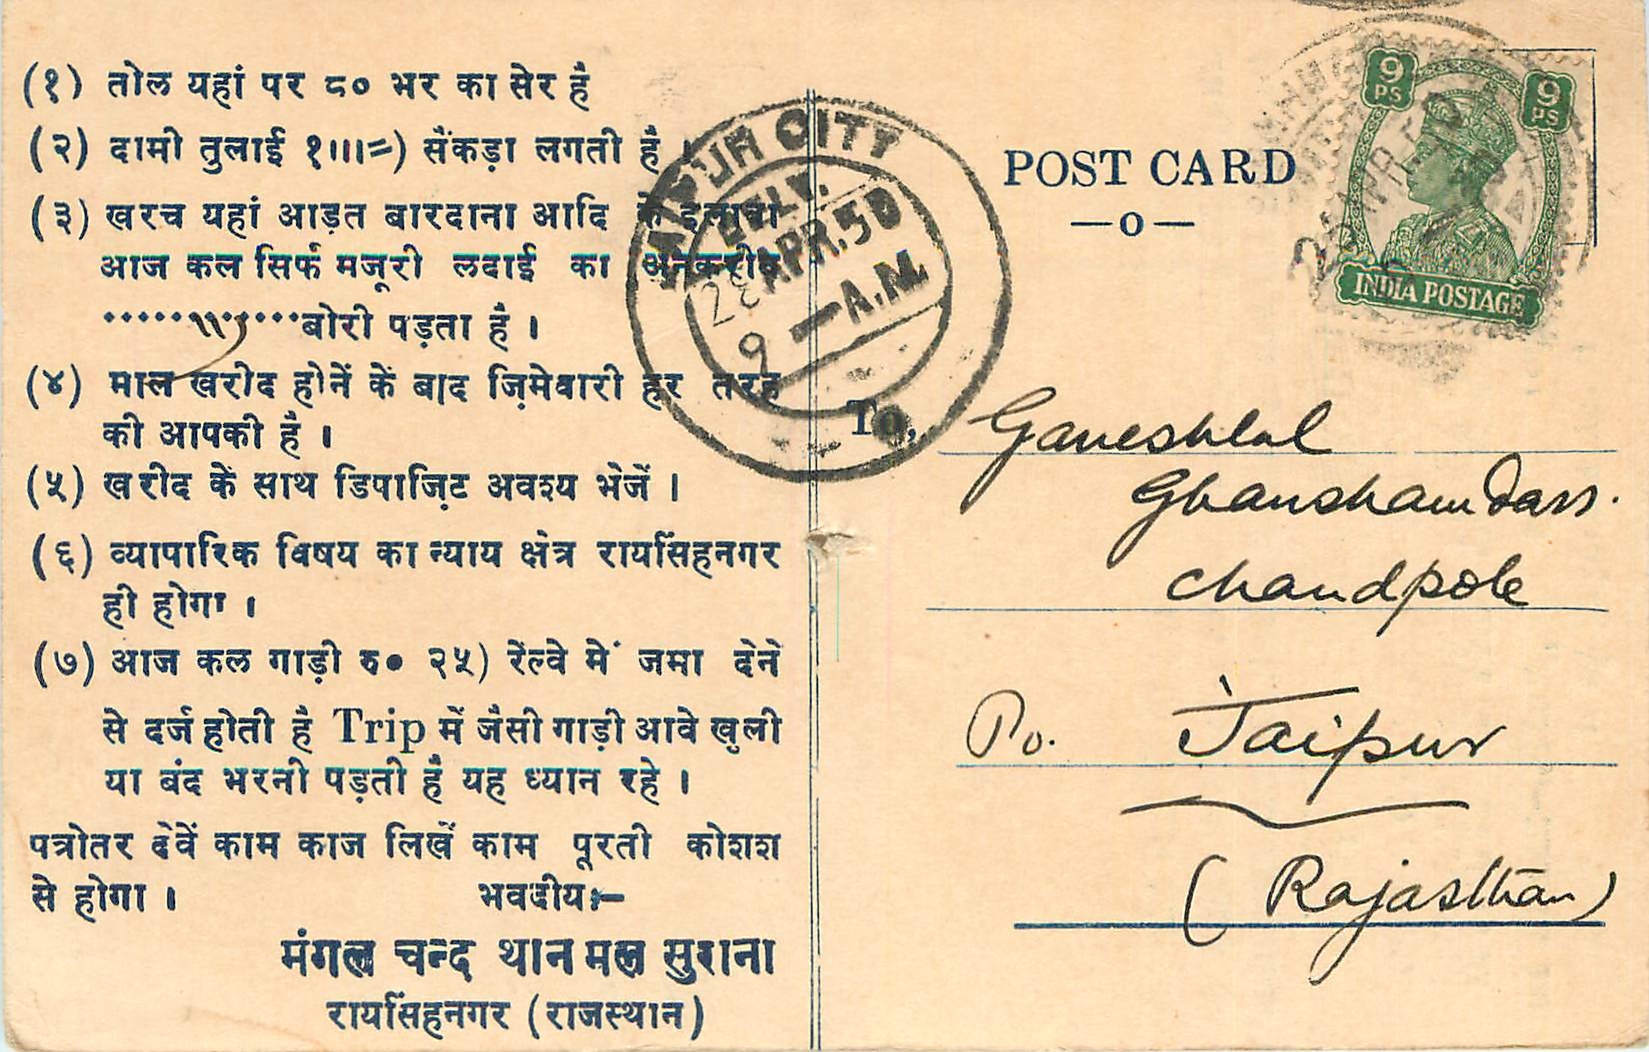 (१) तोल यहां पर ८० भर का सेर है
(२) दामी तुलाई १॥।=) सैंकड़ा लगती है ।
(३) खरच यहां आड़त बारदाना आदि के इलावा
आज कल सिर्फ मजूरी लदाई का
बोरी पड़ता है ।
(४) माल खरीद होनें कें बाद ज़िमेवारी हर तरह
की आपकी है ।
(५) खरीद कें साथ डिपाज़िट अवश्य भेजें ।
(६) व्यापारिक विषय का न्याय क्षेत्र रायसिंहनगर
ही होगा ।
(७) आज कल गाड़ी रु० २५) रेंल्वे में जमा देने
से दर्ज होती है Trip में जैसी गाड़ी आवे खुली
या बंद भरनी पड़ती है यह ध्यान रहे ।
पत्रोतर देवें काम काज लिखें काम पूरती कोशश
से होगा ।
भवदीयः—
मंगल चन्द थान मल सुराना
रायसिंहनगर (राजस्थान)
JAIPUR CITY
DELY.
28 APR. 50
9 — A.M.
POST CARD
—o—
9 PS
9 PS
INDIA POSTAGE
To,
Ganeshlal
Ghanshamdass.
Chandpole
Po. Jaipur
(Rajasthan)